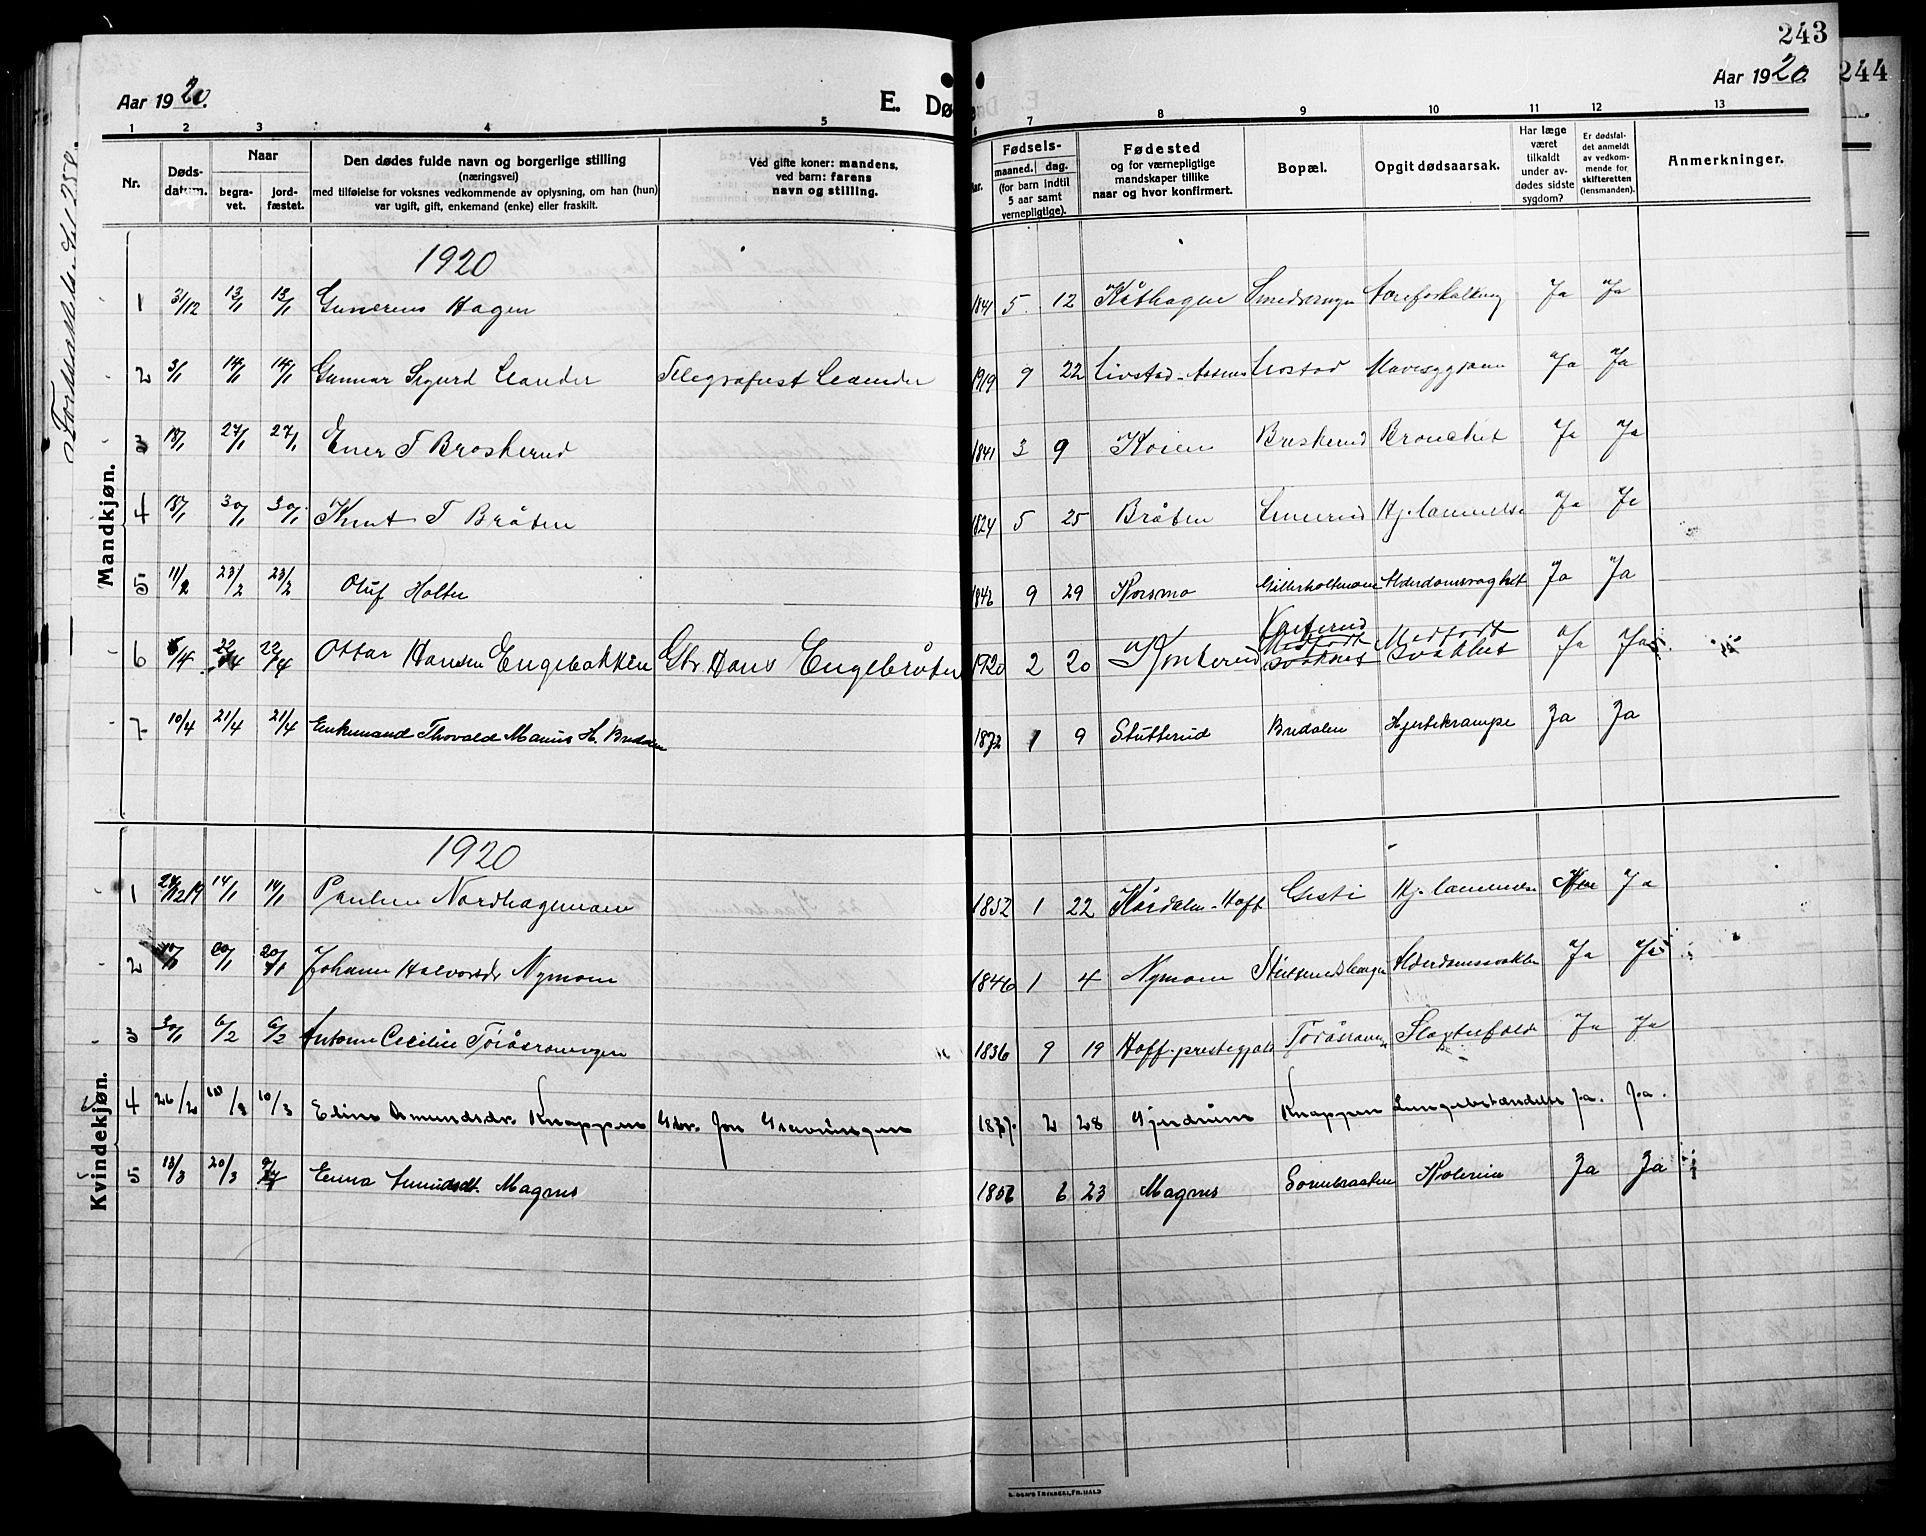 243
244
Aar 1920.
E. Dø
Aar 1920.
1 2 3 4 5 7 8 9 10 11 12 13
Nr.
Døds-
datum.
Naar
begra-
vet.
jord-
fæstet.
Den dødes fulde navn og borgerlige stilling
(næringsvei)
med tilføielse for voksnes vedkommende av oplysning, om han (hun)
var ugift, gift, enkemand (enke) eller fraskilt.
Ved gifte koner: mandens,
ved barn: farens
navn og stilling.
Fødsels-
maaned. dag.
(for barn indtil
5 aar samt
vernepligtige).
Fødested
og for værnepligtige
mandskaper tillike
naar og hvor konfirmert.
Bopæl.
Opgit dødsaarsak.
Har læge
været
tilkaldt
under av-
dødes sidste
sygdom?
Er dødsfal-
det anmeldt
av vedkom-
mende for
skifteretten
(lensmanden).
Anmerkninger.
Mandkjøn.
1920
1 31/12 13/1 13/1 Gunerius Hagen 1841 5 12 Kåthagen Aareforkalkning Ja Ja
2 3/1 14/1 14/1 Gunnar Sigurd Leander Telegrafist Leander 1919 9 22 Livstad - Mavesygdom Ja Ja
3 18/1 27/1 27/1 Ener T Broskerud 1841 3 9 Koien Breskerud Bronchit Ja Ja
4 18/1 30/1 30/1 Knut T Bråten 1824 5 25 Bråten Linerud Hj.lammelse Ja Ja
5 11/2 23/2 23/2 Oluf Holter 1846 9 29 Korsmo Gillerholtmoen Alderdomssvaghet Ja Ja
6 /4 22/4 22/4 Ottar Hansen Engebakken Gbr. Hans Engebråten 1920 2 20 Konterud Medfødt svakhet Ja Ja
7 10/4 21/4 21/4 Enkemand Thovald Marius H. Bredalen 1872 1 9 Stutterud Bredalen Hjertekrampe Ja Ja
Kvindekjøn.
1920
1 14/1 14/1 Pauline Nordhagemoen 1852 1 22 Kårdalen - Hoff Gisti Hj. lammelse Ja
2 20/1 20/1 Johanne Halvorsdr Nymoen 1846 1 4 Nymoen Alderdomssvakhet Ja Ja
3 30/1 6/2 6/2 Antonie Cecilie Toråsranengen 1836 9 19 Hoff prestegjeld Slagtilfælde Ja Ja
4 26/2 10/3 10/3 Eline Amundsdr. Knappen Gbr. Jon 1877. 2 28 Gjerdrum Knappen Lungebetændelse ja. Ja.
5 13/3 20/3 Emma Amundsdt. Magnus 1856 6 23 Magnus Sorumbraaten Kolerine Ja Ja